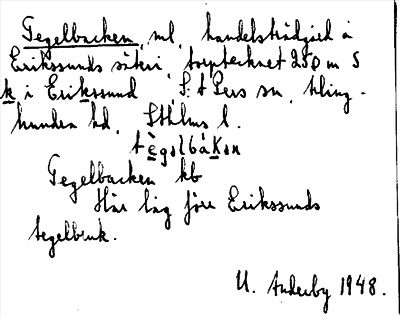 Tegelbacken, ml, handelsträdgård å
Erikssunds säteri, torptecknet 250 m S
k i Erikssund, S:t Pers sn, Ärling-
hundra hd, Sthlms l.
tègəlbàkən
Tegelbacken kb
Här låg förr Erikssunds
tegelbruk.
U. Anderby 1948.